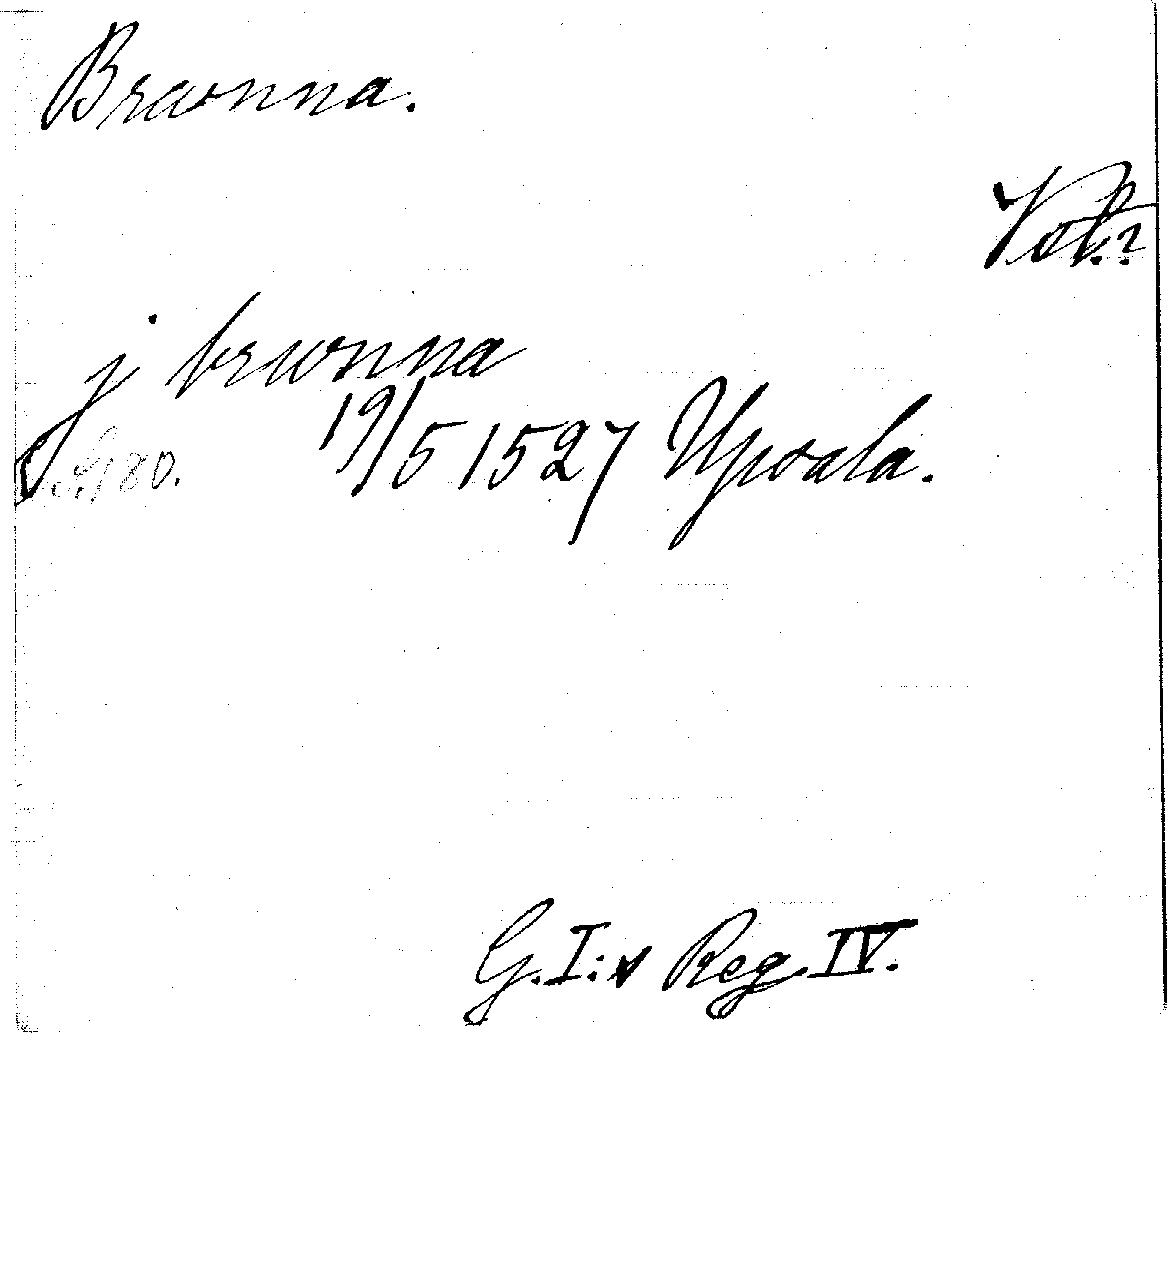 Brwnna.
Vok.?
j brwnna
19/5 1527 Upsala.
S. 180.
G. I:s Reg. IV.